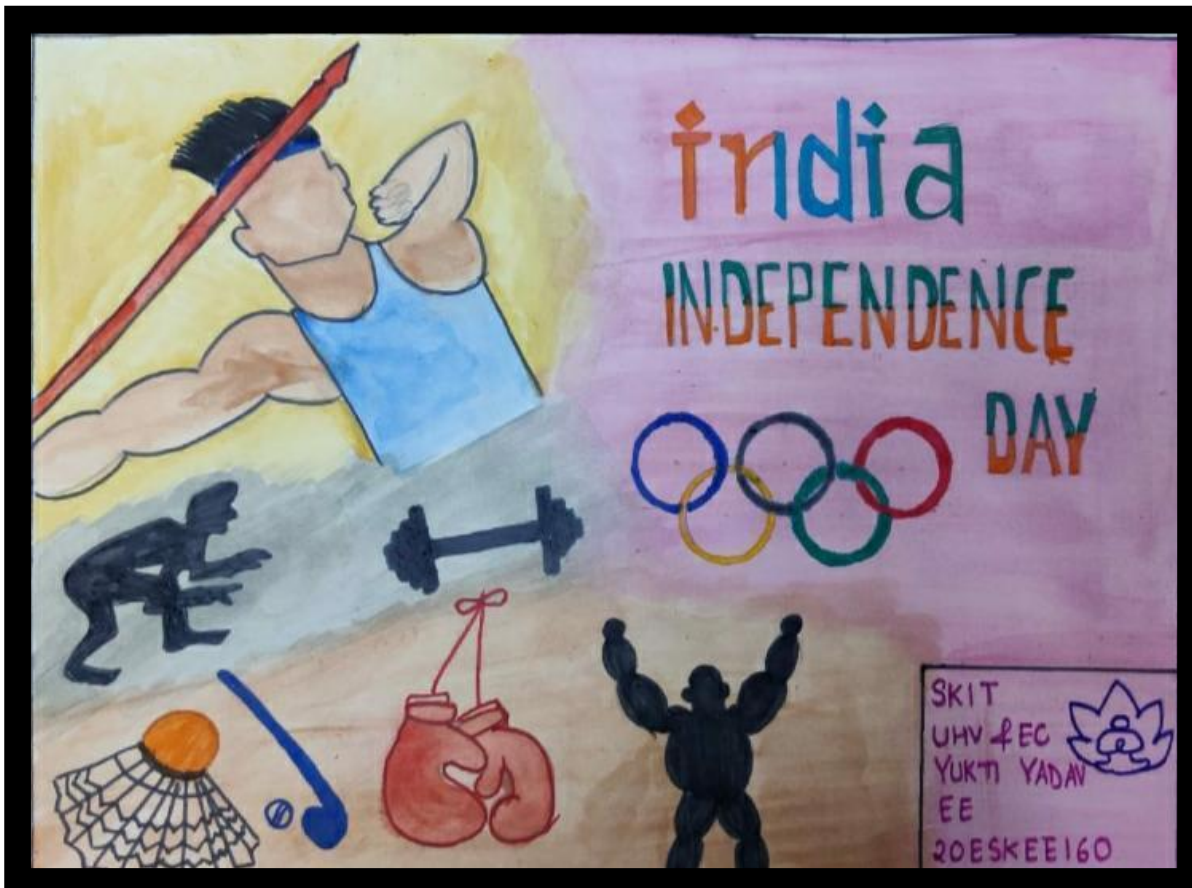 india
INDEPENDENCE
DAY
SKIT
UHV & EC
YUKTI YADAV
EE
20ESKEE160